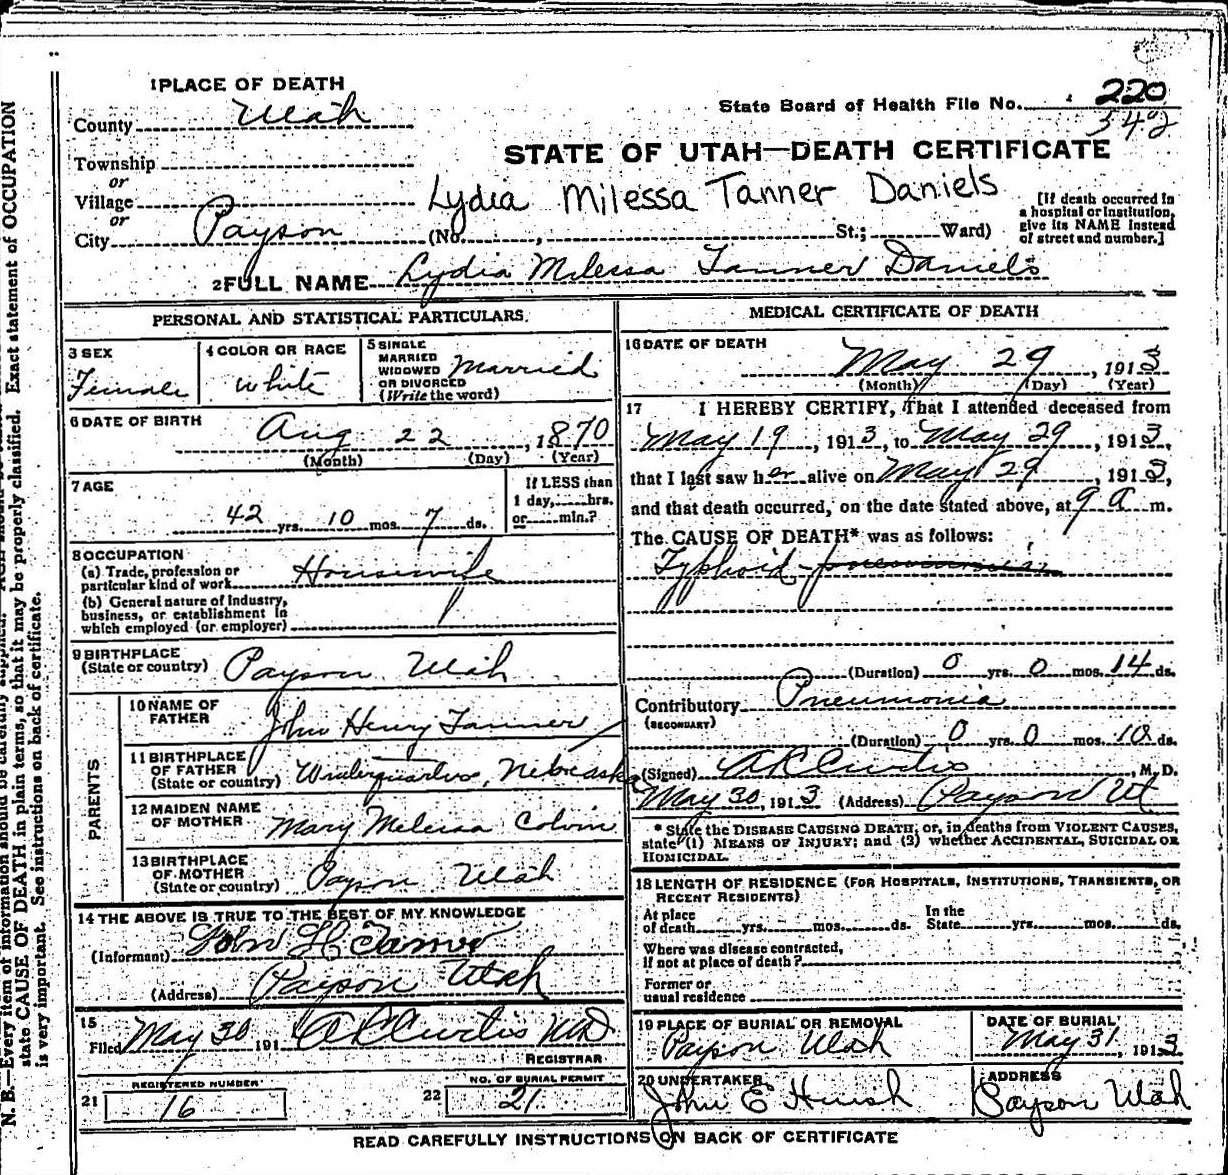 1 PLACE OF DEATH
County Utah
State Board of Health File No. 220
342
STATE OF UTAH—DEATH CERTIFICATE
Township
or
Village
or
City Payson
Lydia Milessa Tanner Daniels
(No. , St.; Ward)
[If death occurred in
a hospital or institution,
give its NAME instead
of street and number.]
2 FULL NAME Lydia Milessa Tanner Daniels
PERSONAL AND STATISTICAL PARTICULARS.
3 SEX
Female
4 COLOR OR RACE
White
5 SINGLE
MARRIED
WIDOWED
OR DIVORCED
(Write the word)
Married
6 DATE OF BIRTH
Aug 22, 1870
(Month) (Day) (Year)
7 AGE
42 yrs. 10 mos. 7 ds.
If LESS than
1 day, hrs.
or min.?
8 OCCUPATION
(a) Trade, profession or
particular kind of work Housewife
(b) General nature of industry,
business, or establishment in
which employed (or employer)
9 BIRTHPLACE
(State or country) Payson Utah
PARENTS
10 NAME OF
FATHER John Henry Tanner
11 BIRTHPLACE
OF FATHER
(State or country) Winterquarters, Nebraska
12 MAIDEN NAME
OF MOTHER Mary Melessa Colvin
13 BIRTHPLACE
OF MOTHER
(State or country) Payson Utah
14 THE ABOVE IS TRUE TO THE BEST OF MY KNOWLEDGE
(Informant) John H Tanner
(Address) Payson Utah
15
Filed May 30 191 A L Curtis MD
REGISTRAR
REGISTERED NUMBER
21 16
NO. OF BURIAL PERMIT
22 21
MEDICAL CERTIFICATE OF DEATH
16 DATE OF DEATH
May 29, 1913
(Month) (Day) (Year)
17 I HEREBY CERTIFY, That I attended deceased from
May 19, 1913, to May 29, 1913
that I last saw her alive on May 29, 1913,
and that death occurred, on the date stated above, at 9 a m.
The CAUSE OF DEATH* was as follows:
Typhoid-pneumonia
(Duration) 0 yrs. 0 mos. 14 ds.
Contributory Pneumonia
(SECONDARY)
(Duration) 0 yrs. 0 mos. 10 ds.
(Signed) A L Curtis, M. D.
May 30, 1913 (Address) Payson Ut
* State the DISEASE CAUSING DEATH; or, in deaths from VIOLENT CAUSES,
state (1) MEANS OF INJURY; and (2) whether ACCIDENTAL, SUICIDAL OR
HOMICIDAL.
18 LENGTH OF RESIDENCE (FOR HOSPITALS, INSTITUTIONS, TRANSIENTS, OR
RECENT RESIDENTS)
At place
of death yrs. mos. ds.
In the
State yrs. mos. ds.
Where was disease contracted,
if not at place of death?
Former or
usual residence
19 PLACE OF BURIAL OR REMOVAL
Payson Utah
DATE OF BURIAL
May 31, 1913
20 UNDERTAKER
John E Huish
ADDRESS
Payson Utah
READ CAREFULLY INSTRUCTIONS ON BACK OF CERTIFICATE
Exact statement of OCCUPATION
state CAUSE OF DEATH in plain terms, so that it may be properly classified.
is very important. See instructions on back of certificate.
N. B.—Every item of information should be carefully supplied.